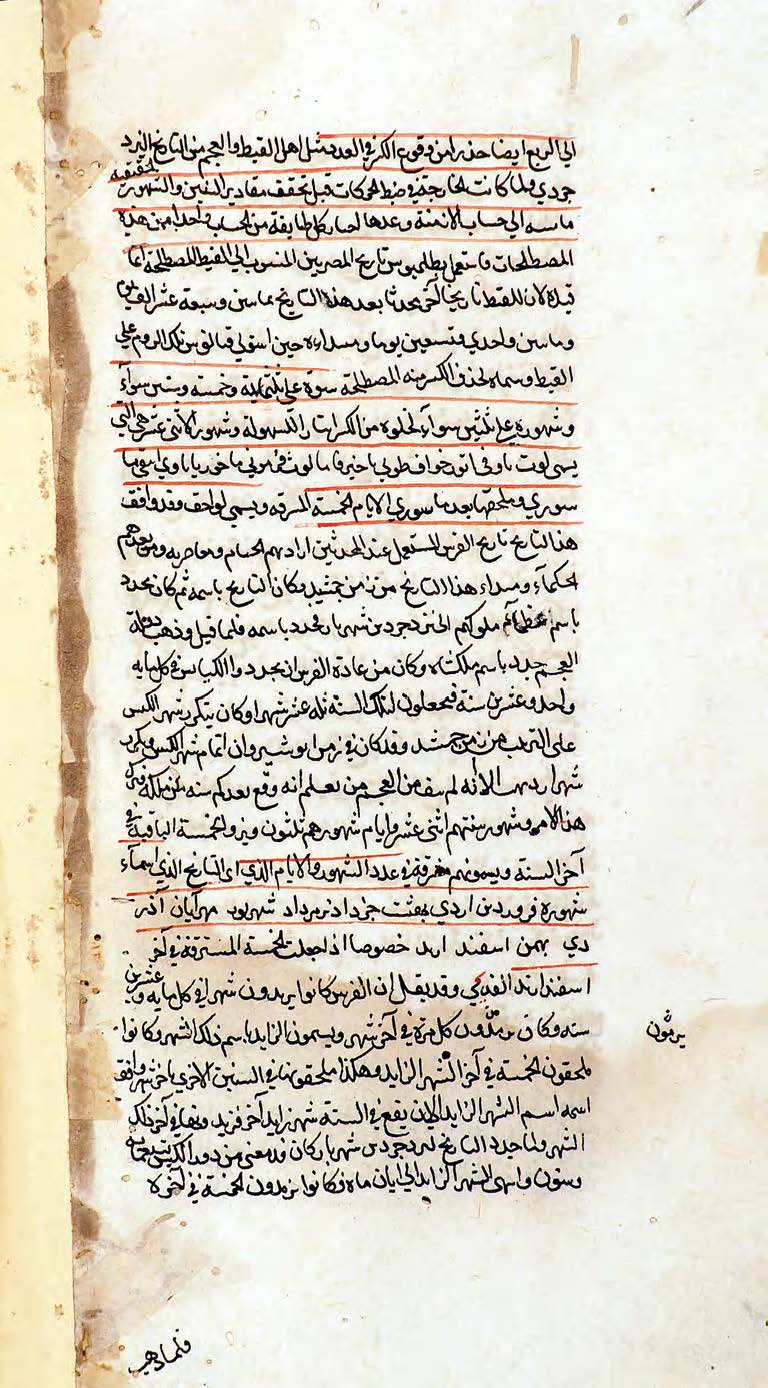 الي الربع ايضا حذرا من وقوع الكسر في العدد مثل اهل القبط والعجم من التاريخ اليزد
جردي ولما كانت الخارجة في ضبط الحركات قبل تحقق مقادير السنين والشهور الحقيقية
ماسه الي حساب الازمنة وعدها اختار كل طايفة من الحساب واحدا من هذه
المصطلحات فاستعمل بطلميوس تاريخ المصريين المنسوب الي القبط المصطلحة انما
قيده لان للقبط تاريخا آخر محدثا بعد هذا التاريخ بماتين وسبعة عشر الف يوم
وماتين واحدي وتسعين يوما ومبداءه حين استولي ملك الروم علي
القبط وسماه لحذف الكسر منه المصطلحة سنوه علي ثلثماية وخمسة وستين سوآء
وشهوره علي ثلثين سوآء لخلوه من الكسر ايثارا للسهولة وشهور الاثني عشر هي التي
يسمي توت باوفي اتور خواق طوبي ماخير فامانوث فرموثي باخون باوني ابيفي
مسوري وملحقها بعد ماسوري الايام الخمسة المسرقه ويسمي لواحق وقد وافق
هذا التاريخ تاريخ الفرس المستعمل عند المحدثين اراد بهم الحسام ومعاصريه ومن بعدهم
الحكمآء ومبداء هذا التاريخ من زمن جمشيد وكان التاريخ باسمه ثم كان يجدد
باسم عظمآء ملوكهم الي يزدجرد بن شهريار فجدد باسمه فلما قتل وذهب دولة
العجم جدد باسم ملكشاه وكان من عادة الفرس ان يجددوا الكبايس في كل مايه
واحد وعشرين سنة فيجعلون لتلك السنة ثلثه عشر شهرا وكان يتكرر شهر الكبس
علي الترتيب من زمن جمشيد وقد كان في زمن انوشيروان اتمام شهر الكبس وتكرر
شهر اردبهشت الا انه لم يبق من العجم من يعلم انه وقع بعدكم سنه من ملكه فترك
هذا الامر وشهور سنتهم اثني عشر وايام شهورهم ثلثون ويزاد الخمسة الباقية في
آخر السنة ويسمونهم مسرقة في عدد الشهور والايام الذي اي التاريخ الذي اسمآء
شهوره فروردين اردي بهشت خرداد تير مرداد شهريور مهر آبان آذر
دي بهمن اسفند ارمد خصوصا اذا جعلت الخمسة المسترقة في آخر
اسفندارمد القديمي وقد يقال ان الفرس كانوا يزيدون شهرا في كل مايه وعشرين
سنه وكان يزيدون كل مرة في آخر شهر ويسمون الزايد باسم ذلك الشهر وكانوا
يلحقون الخمسة في آخر الشهر الزايد وهكذا يلحقونها في السنين الاخري باخر شهر وافق
اسمه اسم الشهر الزايد الي ان يقع في السنة شهر زايد آخر فزيد ونقل في آخر ذلك
الشهر ولما جدد التاريخ ليزدجرد بن شهريار كان قد مضي من دور الكبس تسعمايه
وستون وانتهي الشهر الزايد الي ابان ماه فكانوا يزيدون الخمسة في آخره
يرثون
فلما ذهب